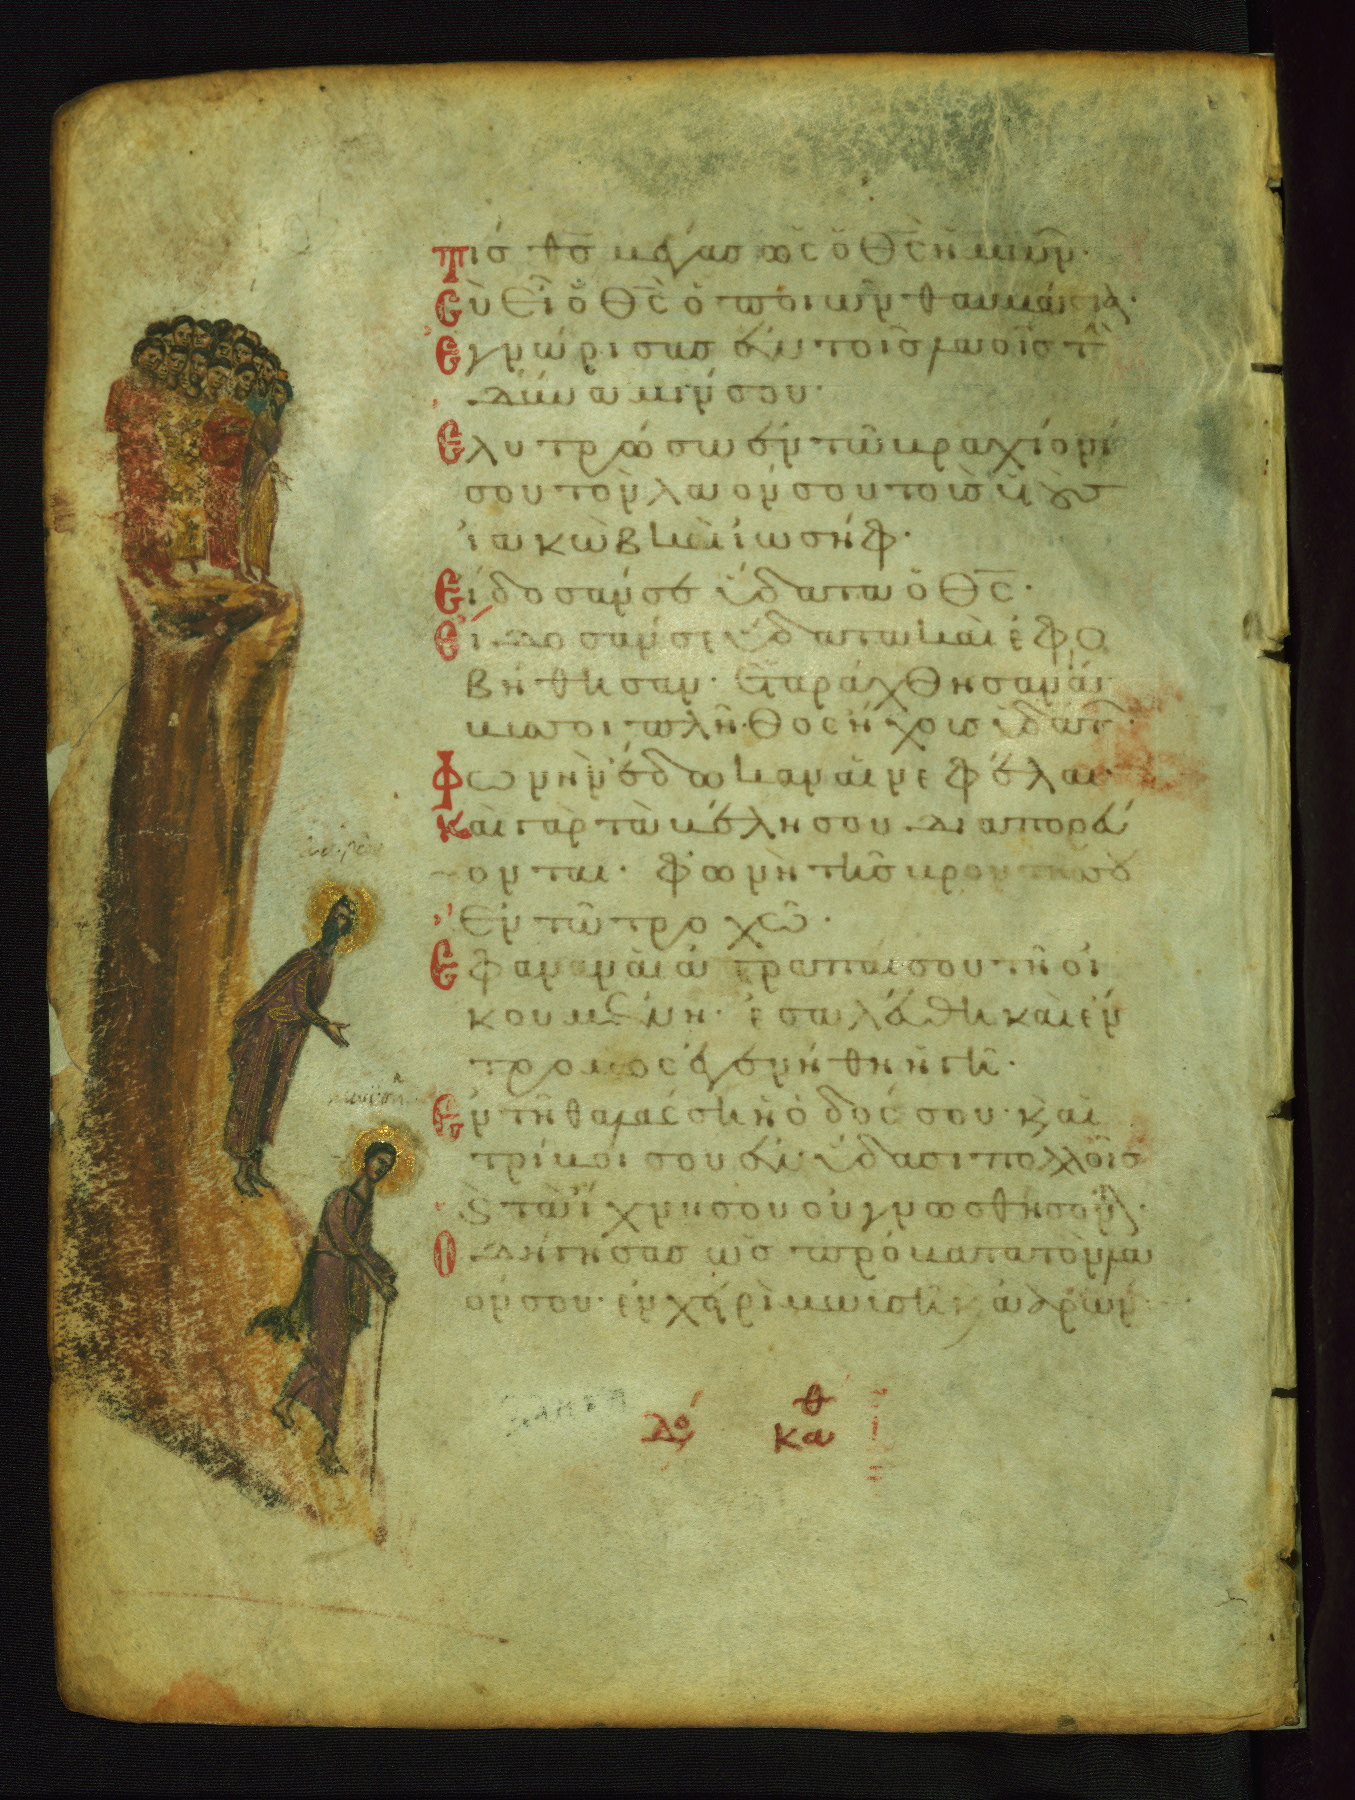 Τίς θ̅ς μέγας ὡς ὁ Θ̅ς ἡμῶν·
Σὺ εἶ ὁ Θ̅ς ὁ ποιῶν θαυμάσια·
Ἐγνώρισας ἐν τοῖς λαοῖς τὴν
δύναμίν σου·
Ἐλυτρώσω ἐν τῶ βραχίονί
σου τὸν λαόν σου τοὺς υἱοὺς
ἰακὼβ καὶ ἰωσήφ·
Εἴδοσάν σε ὕδατα ὁ Θ̅ς·
Εἴδοσάν σε ὕδατα καὶ ἐφο
βήθησαν· ἐταράχθησαν ἄ
βυσσοι πλῆθος ἤχους ὑδάτων·
Φωνὴν ἔδωκαν αἱ νεφέλαι·
Καὶ γὰρ τὰ βέλη σου διαπορεύ
ονται· φωνὴ τῆς βροντῆς σου
Ἐν τῶ τροχῶ·
Ἔφαναν αἱ ἀστραπαί σου τῆ οἰ
κουμένη· ἐσαλεύθη καὶ ἔν
τρομος ἐγενήθη ἡ γῆ·
Ἐν τῆ θαλάσση ἡ ὁδός σου· καὶ
τρίβοι σου ἐν ὕδασι πολλοῖς
καὶ τὰ ἴχνη σου οὐ γνωσθήσονται·
Ὁδήγησας ὡς πρόβατα τὸν λα
όν σου· ἐν χειρὶ μωυσῆ καὶ ἀαρών·
ἀαρὼν
μωυσῆς
Δό καθ